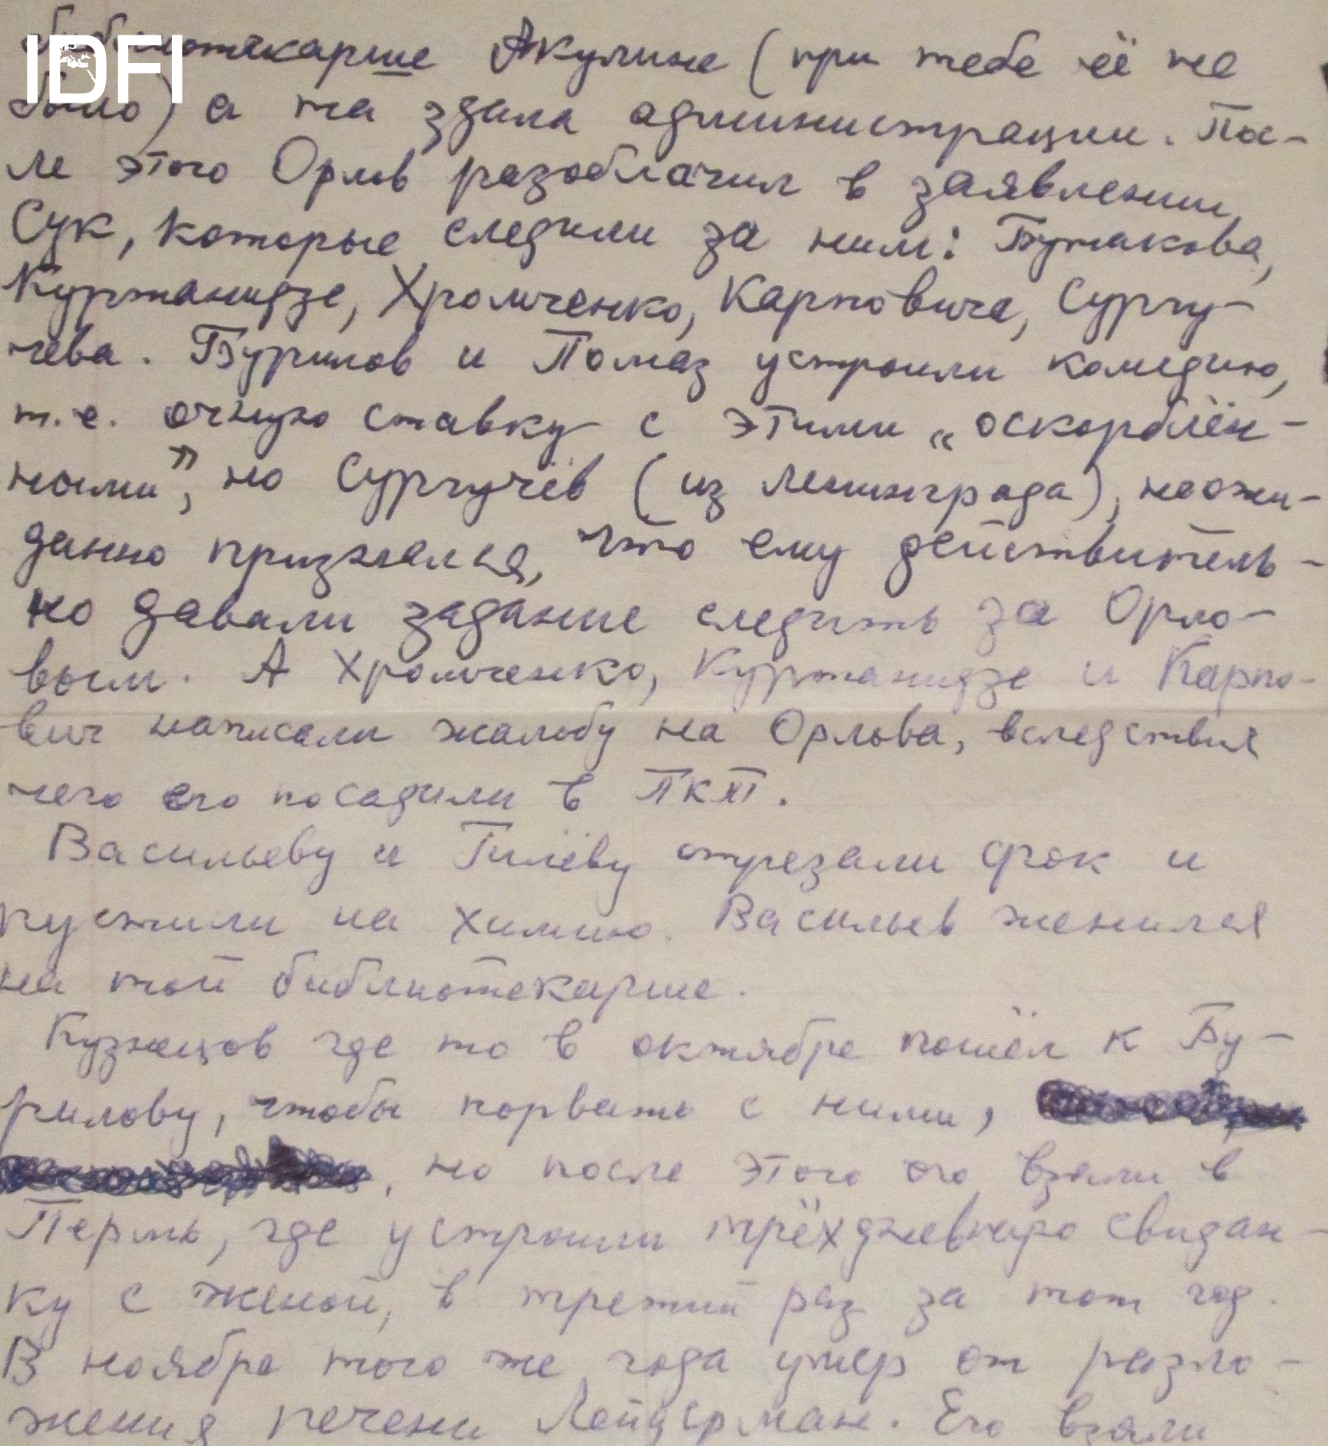 IDFI
библиотекарше Акулине (при тебе её не
было) а та здала администрации. Пос-
ле этого Орлов разоблачил в заявлении,
Сук, которые следили за ним: Бутакова,
Куржанидзе, Хромченко, Карповича, Сургу-
чева. Бурилов и Помаз устроили комедию,
т.е. очную ставку с этими „оскорблён-
ными", но Сургучёв (из Ленинграда), неожи-
данно признался, что ему действитель-
но давали задание следить за Орло-
вым. А Хромченко, Куржанидзе и Карпо-
вич написали жалобу на Орлова, вследствия
чего его посадили в ПКТ.
Васильеву и Гилёву отрезали срок и
пустили на химию. Васильев женился
на той библиотекарше.
Кузнецов где то в октябре пошёл к Бу-
рилову, чтобы порвать с ними,
, но после этого его взяли в
Пермь, где устроили трёхдневную свидан-
ку с женой, в третий раз за тот год.
В ноябре того же года умер от разло-
жения печени Лейцерман. Его взяли